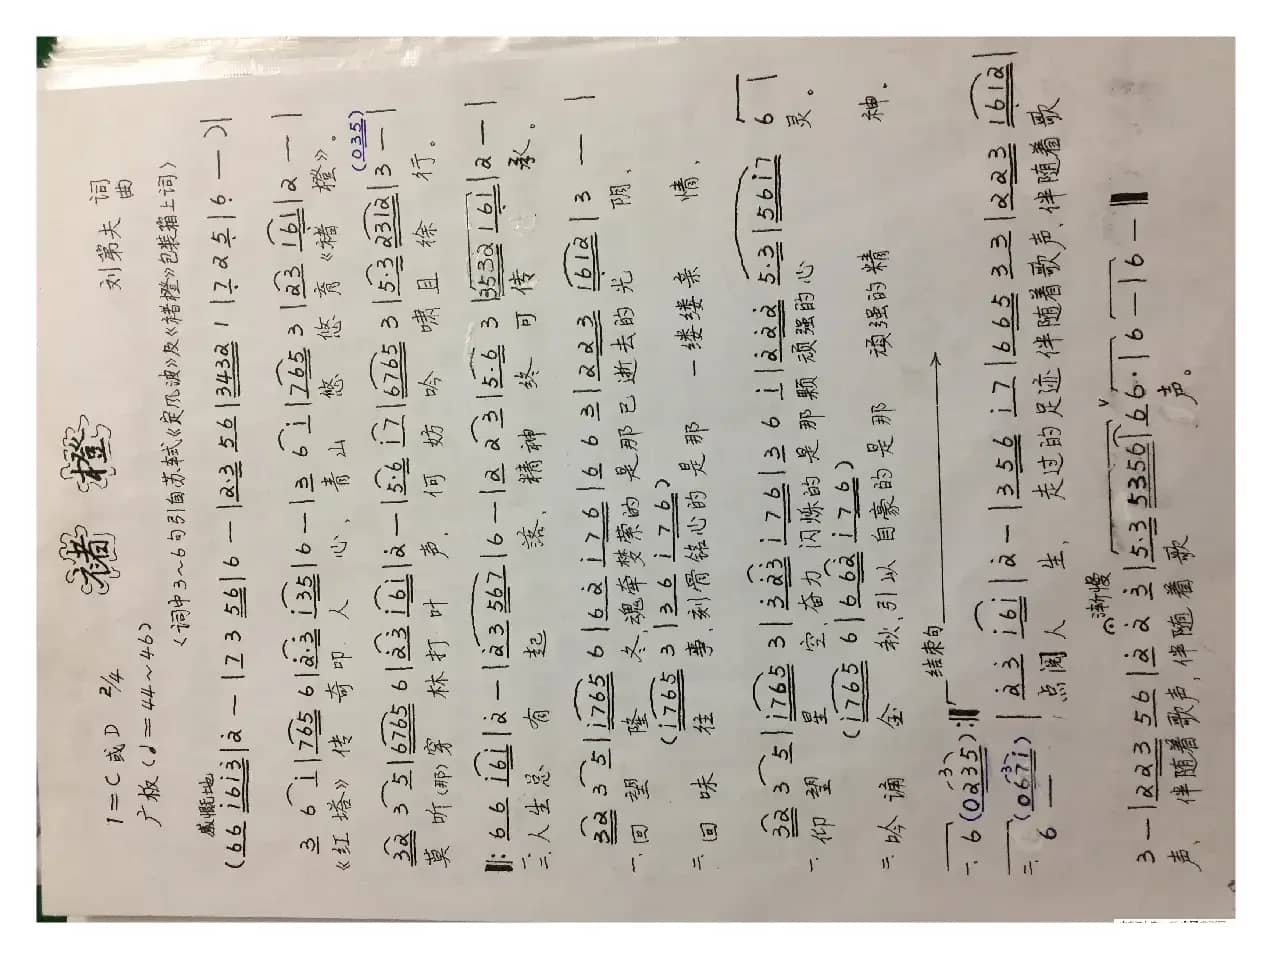 褚 橙
1=C 或 D 2/4
刘第夫 词曲
广板 (♩=44~46)
<词中3~6句引自苏轼《定风波》及《褚橙》包装箱上词>
感慨地
(66 i6i3|2 — |173 56|6 — |2·3 56|3432 1|7 2 5|6 — )|
3 6 i|765 6|2·3 i35|6 — |3 6 i|765 3|23 161|2 — |
《红塔》传 奇 叩 人 心, 青 山 悠 悠 育《褚 橙》.
(035)
32 3 5|6765 6|23 i6i|2 — |5·6 i7|6765 3|5·3 2312|3 — |
莫 听(那)穿 林 打 叶 声, 何 妨 吟 啸 且 徐 行。
‖: 6 6 i6i|2 — |23 567|6 — |2 23|5·6 3|3532 161|2 — |
一.二.人生总 有 起 落、精 神 终 可 传 承。
32 3 5|i765 6|662 i76|6 6 3|2223|1612|3 — |
一.回 望 隆 冬,魂牵梦萦的 是 那 已 逝去的 光 阴,
(i765 3|36 i76)
二.回 味 往 事,刻骨铭心的 是 那 一 缕缕亲 情,
32 3 5|i765 3|323 i76|3 6 i|222 5·3|56i7 6|
一.仰 望 星 空,奋力 闪烁的 是 那颗 顽强的心 灵。
(i765 6|662 i76)
二.吟 诵 金 秋,引以 自豪的 是 那 顽强的精 神。
结束句
一. 6(0235):‖
二. (067i) 6 — |23 i6i|2 — |356 i7|665 33|2223 1612|
点阅 人 生, 走过的足迹 伴随着歌声、伴随着歌
渐慢
3 — |2223 56|2 2 3|5·3 5356|66·|6 — |6 — ‖
声、 伴随着歌声,伴随 着 歌 声。